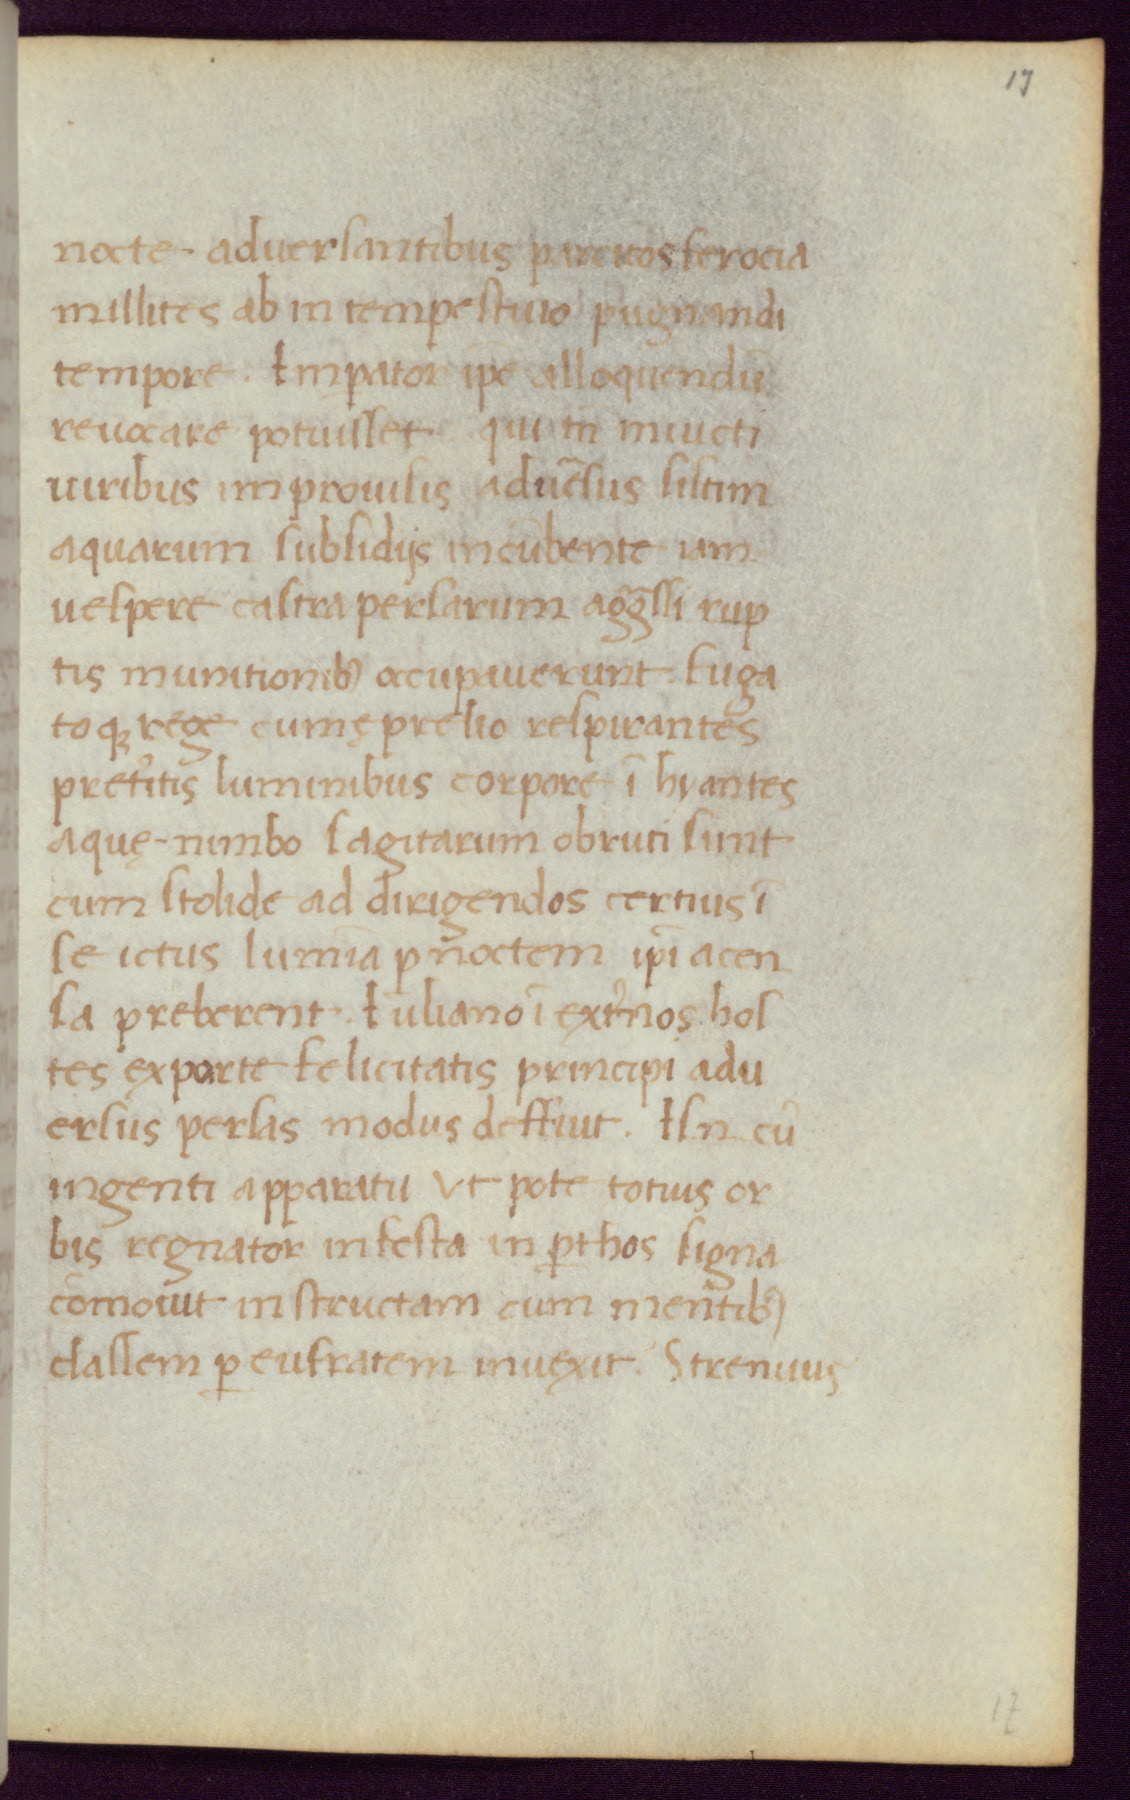 17
nocte adversantibus percitos ferocia
millites ab in tempestiuo pugnandi
tempore. Impator ip̄e alloquendū
reuocare potuisset qui tn̄ inuicti
uiribus improuisis aduēsus sistim
aquarum subsidijs incūbente iam
uespere castra persarum aggr̄ssi rup
tis munitionibꝰ occupauerunt fuga
toqꝫ rege cumę prelio respirantes
pretītis luminibus corpore ī hyantes
aquę nimbo sagitarum obruti sunt
cum stolide ad dirigendos certius ī
se ictus lumīa ꝑ noctem ip̄i acen
sa preberent. Iuliano ī ext̄nos hos
tes ex parte felicitatis principi adu
ersus persas modus deffuit. Is n̄ cū
ingenti apparatu vt pote totius or
bis regnator infesta in ꝑthos signa
cōmouit instructam cum mentibꝰ
classem ꝑ eufratem inuexit. Strenuus
17